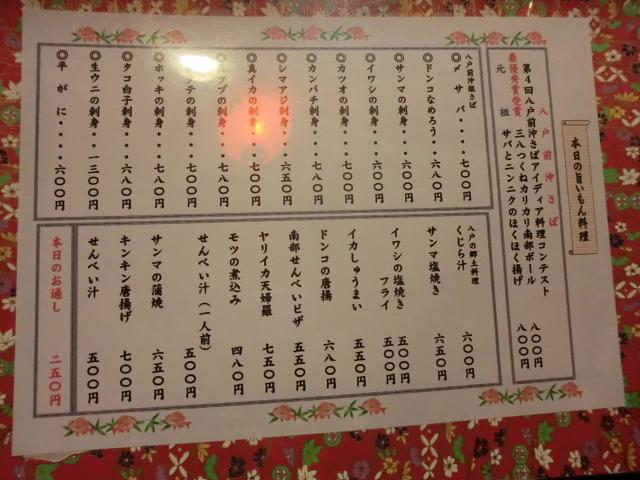 本日の旨いもん料理
八戸前沖さば
第4回八戸前沖さばアイディア料理コンテスト
最優秀賞受賞 三八つくねカリカリ南部ボール 八〇〇円
元祖 サバとニンニクのほくほく揚げ 八〇〇円
八戸前沖銀さば
◎〆サバ・・・・七〇〇円
◎ドンコなめろう・・六八〇円
◎サンマの刺身・・・六〇〇円
◎イワシの刺身・・・六〇〇円
◎カツオの刺身・・・七八〇円
◎カンパチ刺身・・・七八〇円
◎シマアジ刺身・・・六五〇円
◎真イカの刺身・・・七〇〇円
ツブの刺身・・・七八〇円
テの刺身・・・五八〇円
◎ホッキの刺身・・・七八〇円
◎タコ白子刺身・・・六八〇円
◎生ウニの刺身・・一三〇〇円
◎平がに・・・・・六〇〇円
八戸の郷土料理
くじら汁 六〇〇円
サンマ塩焼き 六五〇円
イワシの塩焼き 五〇〇円
フライ 五〇〇円
イカしゅうまい 五五〇円
ドンコの唐揚 六八〇円
南部せんべいピザ 五五〇円
ヤリイカ天婦羅 七五〇円
モツの煮込み 四八〇円
せんべい汁(一人前) 五〇〇円
サンマの蒲焼 六五〇円
キンキン唐揚げ 七〇〇円
せんべい汁 五〇〇円
本日のお通し 二五〇円